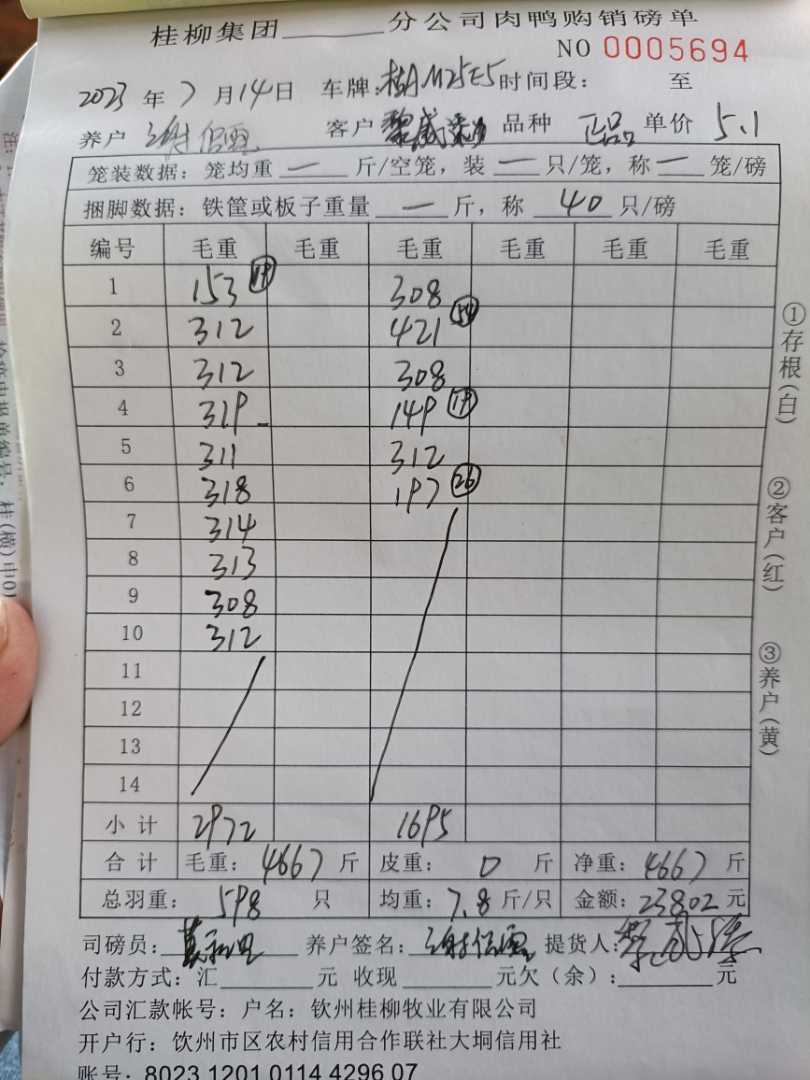 桂柳集团______分公司肉鸭购销磅单
NO 0005694
2023 年 7 月 14 日 车牌: 时间段: 至
养户 谢 客户 黎威 品种 正品 单价 5.1
笼装数据: 笼均重 — 斤/空笼, 装 — 只/笼, 称 — 笼/磅
捆脚数据: 铁筐或板子重量 — 斤, 称 40 只/磅
编号 毛重 毛重 毛重 毛重 毛重 毛重
1 153 19 308
2 312 421 54
3 312 308
4 319 149 19
5 311 312
6 318 197 26
7 314
8 313
9 308
10 312
11
12
13
14
小计 2972 1695
合计 毛重: 4667 斤 皮重: 0 斤 净重: 4667 斤
总羽重: 598 只 均重: 7.8 斤/只 金额: 23802 元
司磅员: 养户签名: 谢 提货人: 黎威
付款方式: 汇______元 收现______元欠(余):______元
公司汇款帐号: 户名: 钦州桂柳牧业有限公司
开户行: 钦州市区农村信用合作联社大垌信用社
账号: 8023 1201 0114 4296 07
①存根(白)
②客户(红)
③养户(黄)